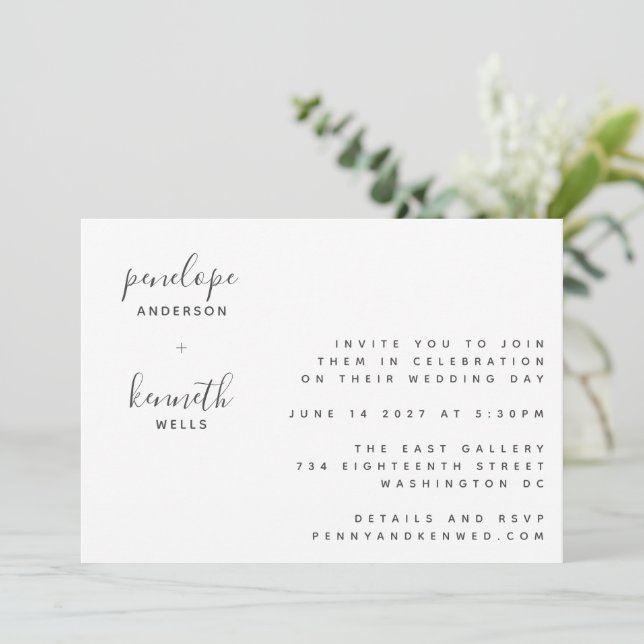 penelope
ANDERSON
+
kenneth
WELLS
INVITE YOU TO JOIN
THEM IN CELEBRATION
ON THEIR WEDDING DAY
JUNE 14 2027 AT 5:30PM
THE EAST GALLERY
734 EIGHTEENTH STREET
WASHINGTON DC
DETAILS AND RSVP
PENNYANDKENWED.COM